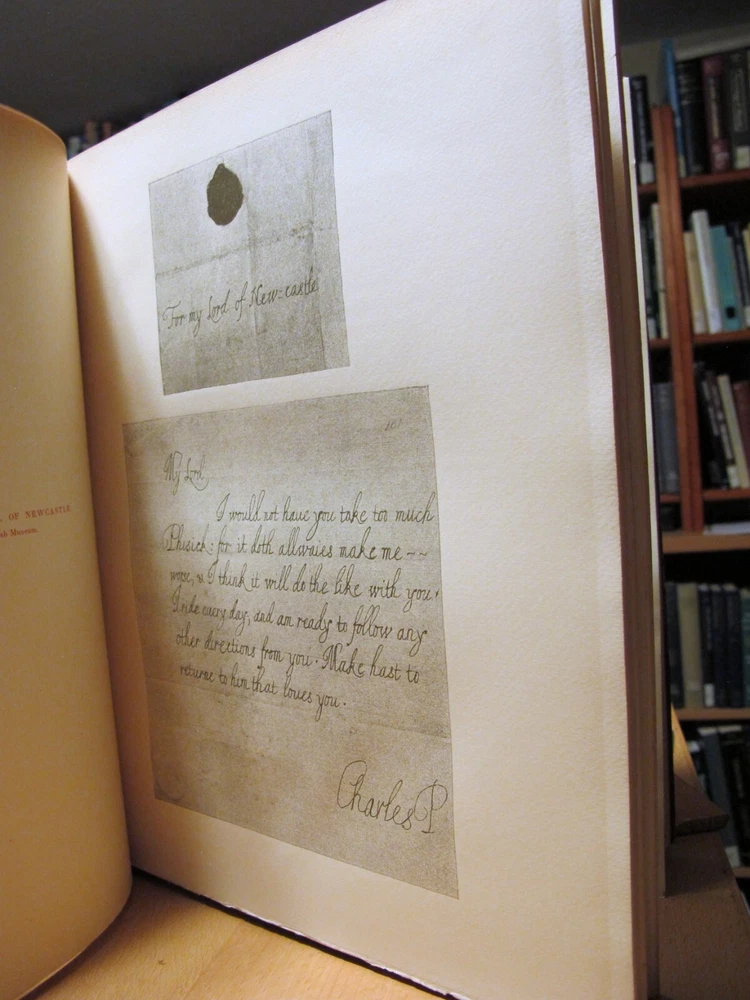 OF NEWCASTLE
Museum.
For my Lord of New=castle
My Lord
I would not haue you take too much
Phisick: for it doth allwaies make me ~~
worse, & I think it will do the like with you.
I ride euery day, and am ready to follow any
other directions from you. Make hast to
returne to him that loues you.
Charles P